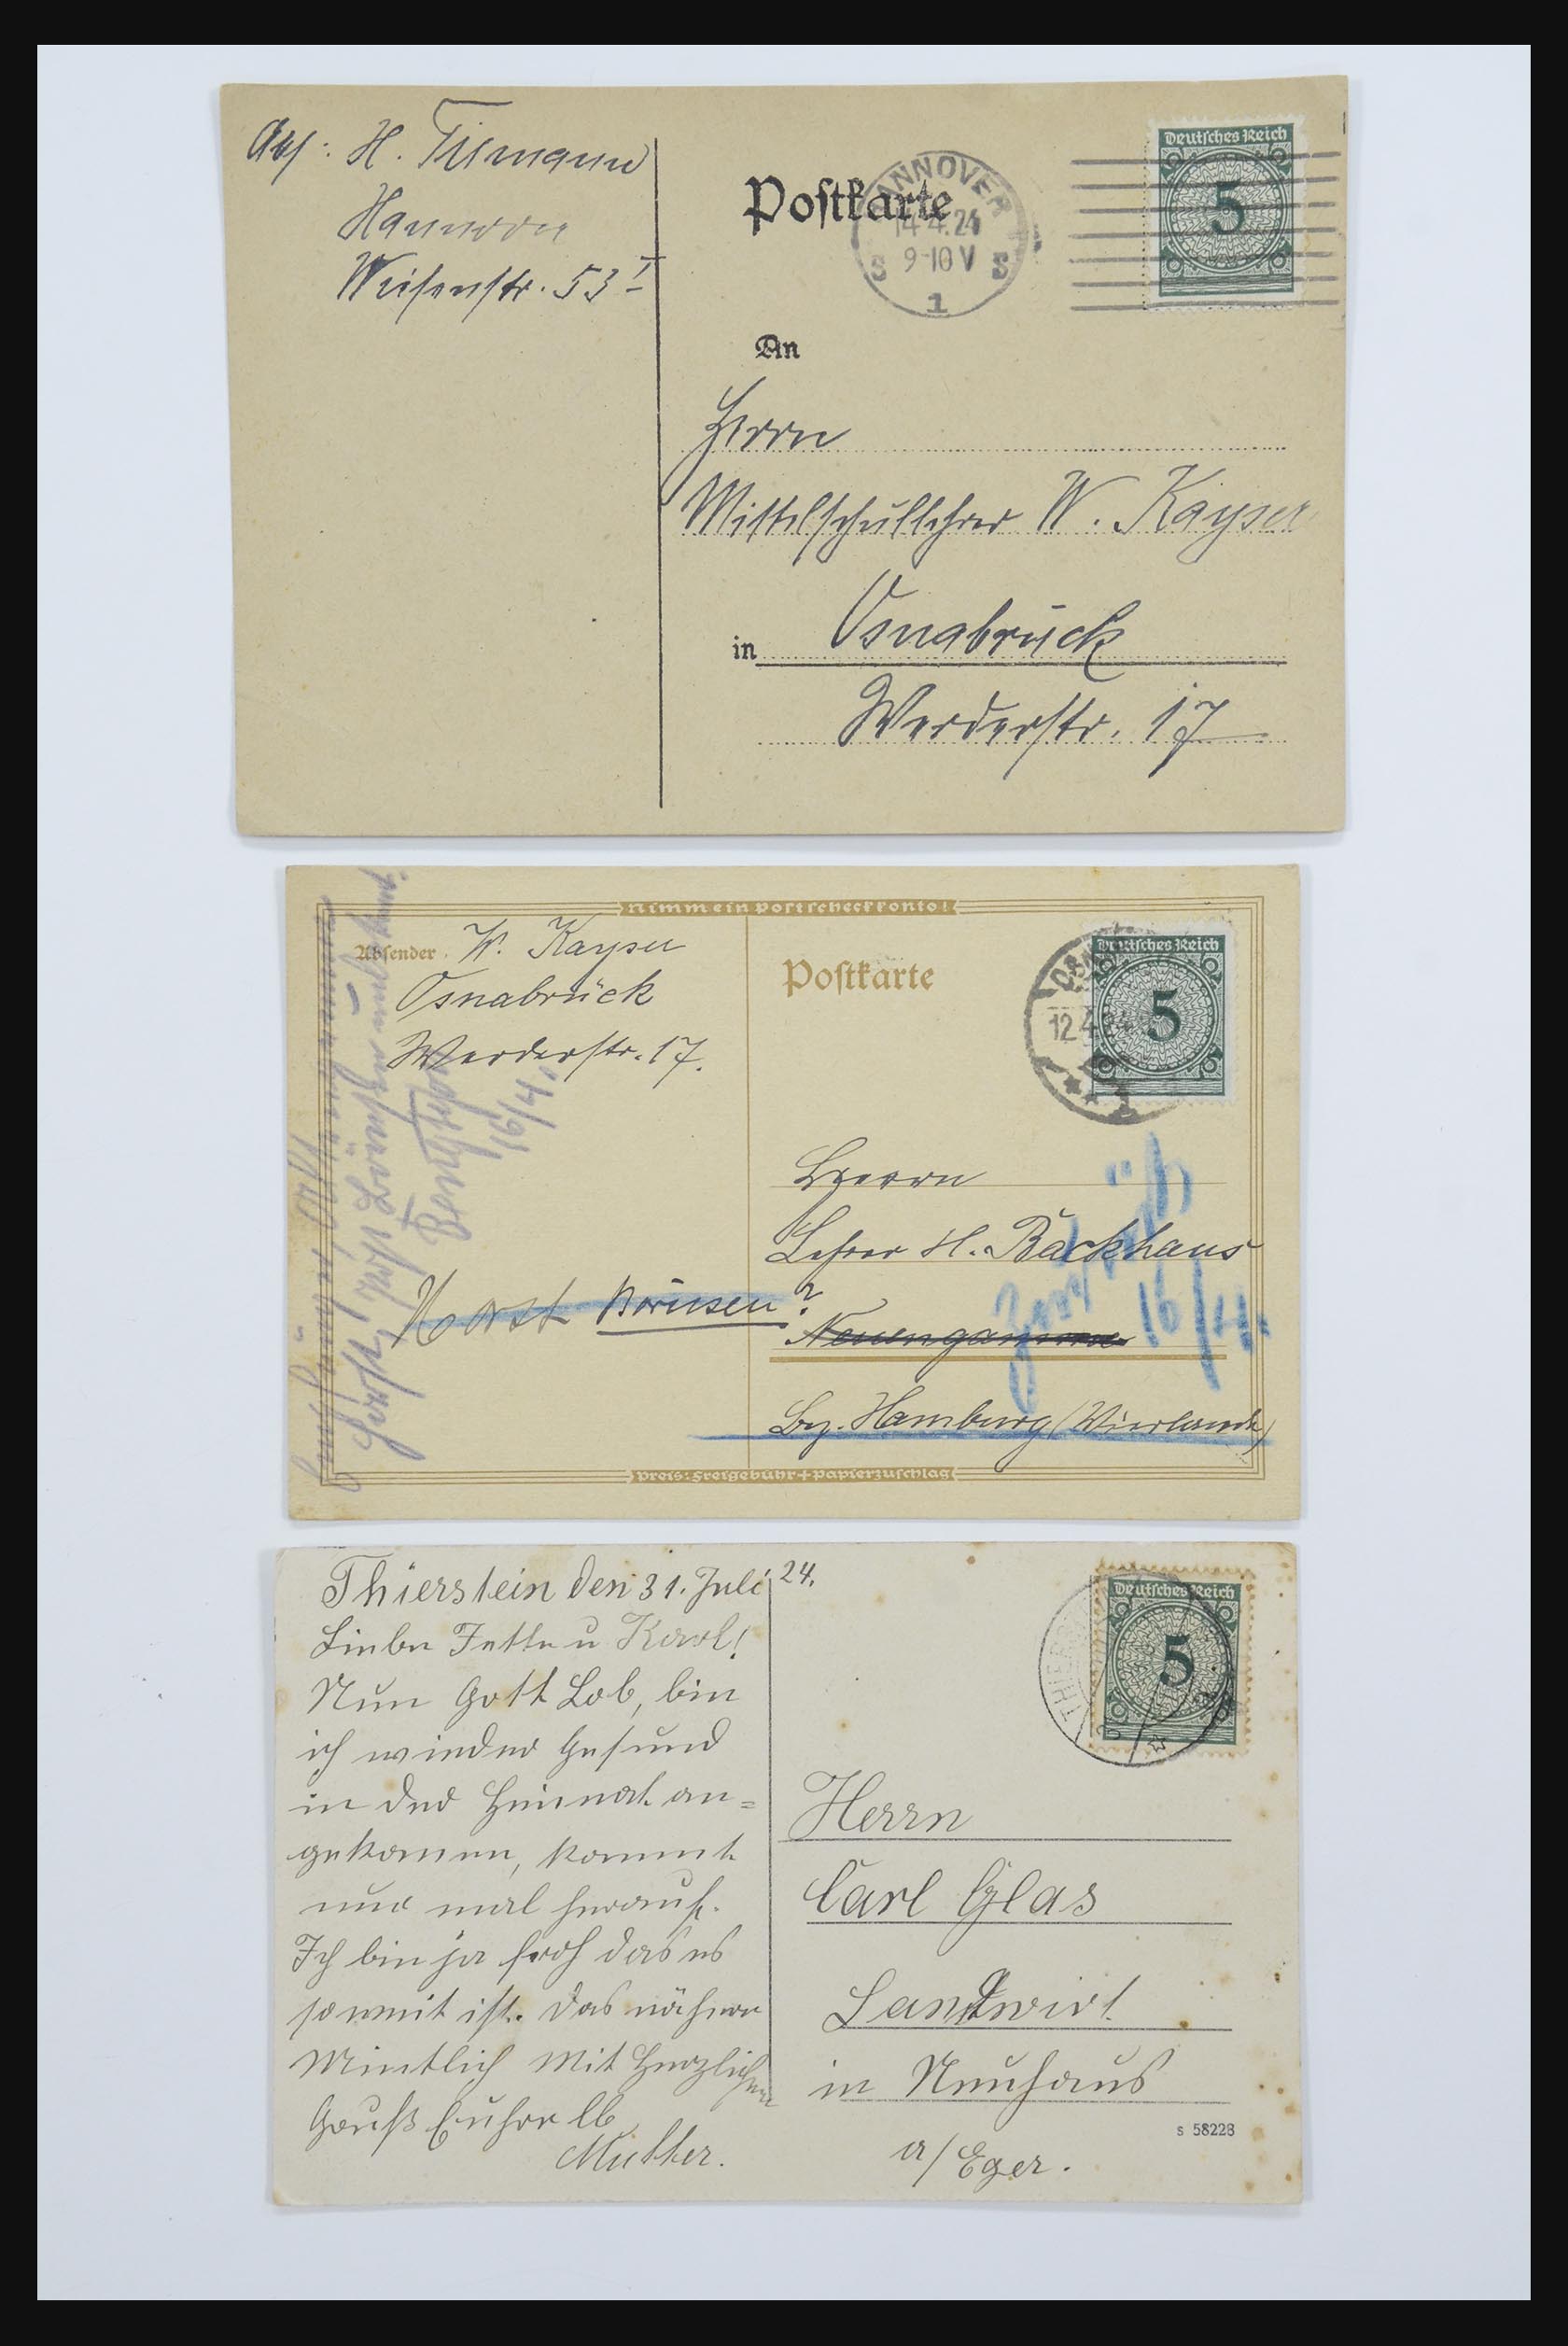 Abs: H. Tilmann
Hannover
Weisenstr. 53 I
Postkarte
HANNOVER
14.4.24
9-10 V
S S
1
Deutsches Reich
5
An
Herrn
Mittelschullehrer W. Kayser
in Osnabrück
Werderstr. 17
Nimm ein Postscheckkonto!
Absender W. Kayser
Osnabrück
Werderstr. 17.
Postkarte
12.4.
Deutsches Reich
5
Herrn
Lehrer H. Backhaus
Neuengamme
Bez. Hamburg (Vierlande)
Horst Börnsen?
16/4.
Zurück
16/4.
Preis: Freigebühr + Papierzuschlag
Thierstein den 31. Juli 24.
Liebe Jette u Karl!
Nun Gott Lob, bin
ich wieder Gesund
in der Heimat an=
gekomen, kommt
nur mal herauf.
Ich bin ja froh das es
soweit ist. das nähere
Mintlich Mit Herzlichen
Gruß Euhre lb
Mutter.
Deutsches Reich
5
Herrn
Carl Glas
Landwirt
in Neuhaus
a/Eger.
S 58228